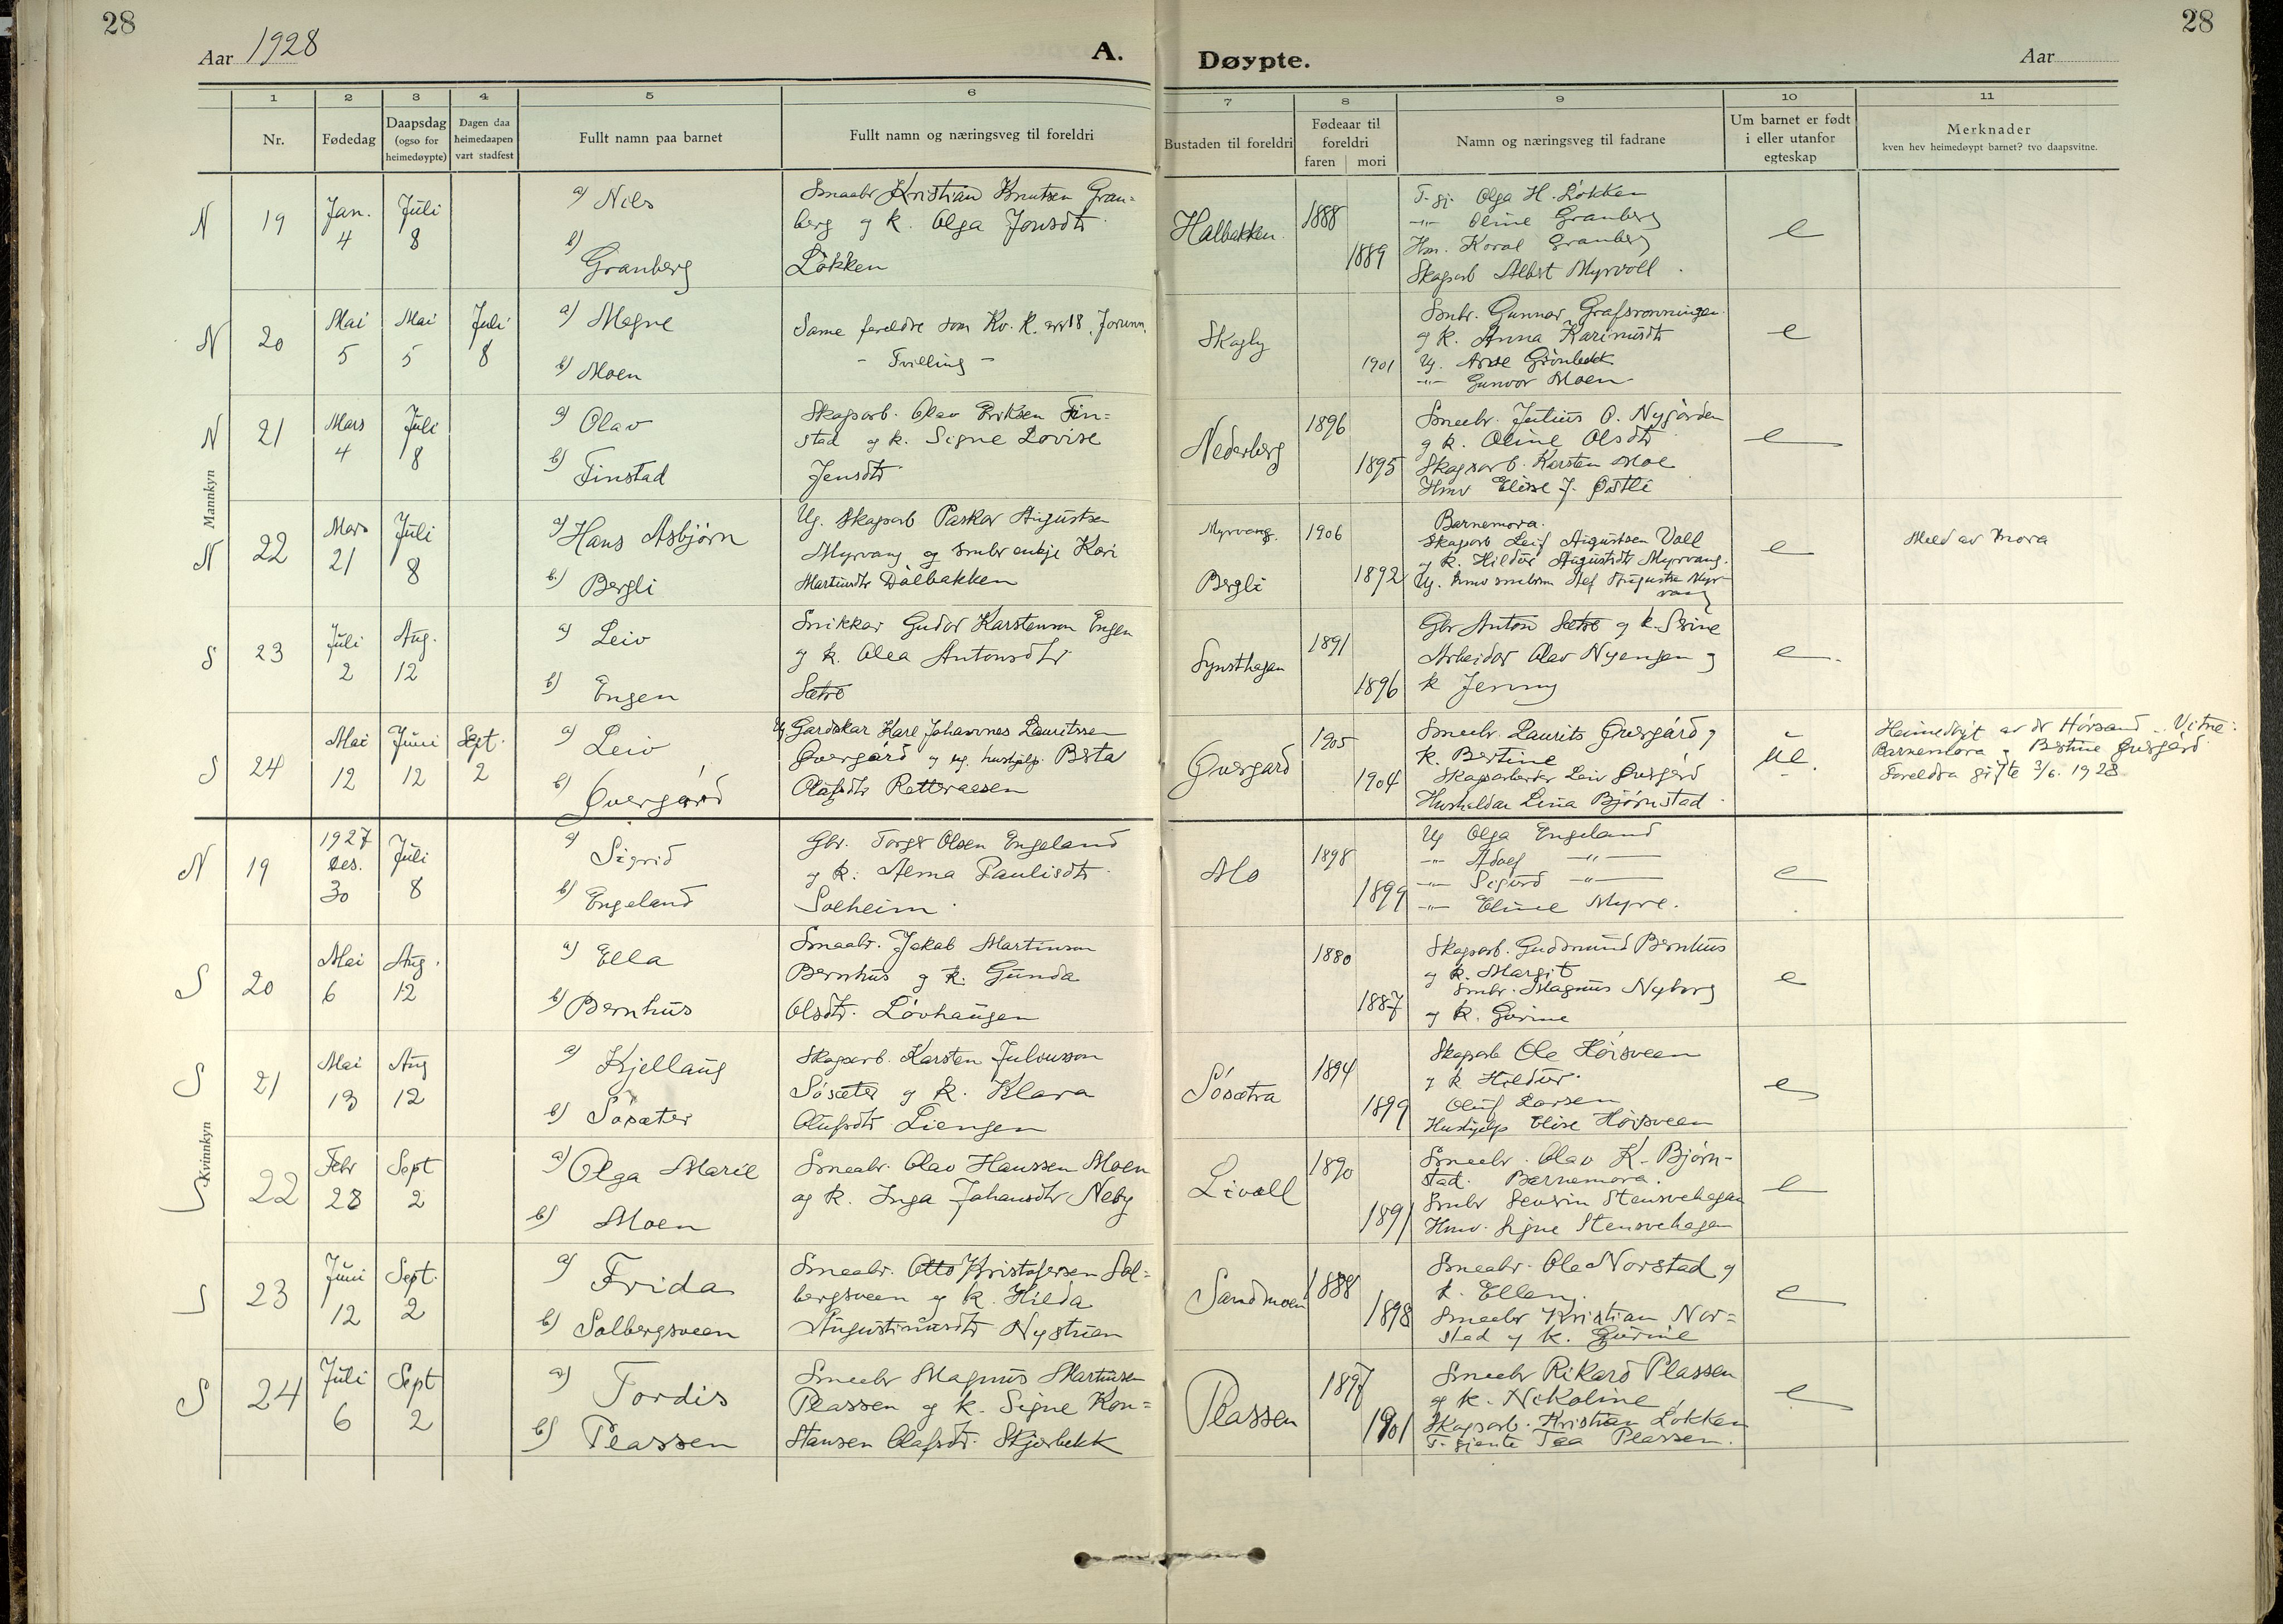 28
28
Aar 1928
A.
Døypte.
Aar
1
2
3
4
5
6
7
8
9
10
11
Nr.
Fødedag
Daapsdag
(ogso for
heimedøypte)
Dagen daa
heimedaapen
vart stadfest
Fullt namn paa barnet
Fullt namn og næringsveg til foreldri
Bustaden til foreldri
Fødeaar til
foreldri
faren
mori
Namn og næringsveg til fadrane
Um barnet er født
i eller utanfor
egteskap
Merknader
kven hev heimedøypt barnet? tvo daapsvitne.
Mannkyn
N
19
Jan.
4
Juli
8
a) Nils
b) Granberg
Smaabr Kristian Knutsen Gran=
berg og k. Olga Jonsdtr
Løkken
Halbakken
1888
1889
T. gj. Olga H. Løkken
-"- Oline Granberg
Hm. Koral Granberg
Skogarb Albert Myrvoll.
e
N
20
Mai
5
Mai
5
Juli
8
a) Magne
b) Moen
Same foreldre som Kv. K. nr 18, Jorunn.
- Tvilling -
Skogly
1901
Smbr. Gunnar Grafsrønningen
og k. Anna Karinusdtr
Ug. Arne Grønbekk
-"- Gunvor Moen
e
N
21
Mars
4
Juli
8
a) Olav
b) Finstad
Skogsarb. Olav Eriksen Fin=
stad og k. Signe Lovise
Jensdtr
Nederberg
1896
1895
Smaabr. Julius O. Nygården
og k. Oline Olsdtr
Skogsarb. Karsten Moe
Hmv Elise J. Østli
e
N
22
Mars
21
Juli
8
a) Hans Asbjørn
b.) Bergli
Ug. Skogsarb Paskar Augustsen
Myrvang og smbr enkje Kari
Martinsdtr Dalbakken
Myrvang.
Bergli
1906
1892
Barnemora.
Skogarb Leif Augustsen Voll
og k. Hildur Augustsdtr Myrvang.
vang
e
Meld av mora
S
23
Juli
2
Aug.
12
a) Leiv
b) Engen
Snikkar Gudor Karstenson Engen
og k. Olea Antonsdtr
Sætre
Synsthagen
1891
1896
Gbr Anton Sætre og k. Sine
Arbeidar Olav Nyengen og
k Jenny
e
S
24
Mai
12
Juni
12
Sept.
2
a) Leiv
b) Øvergård
Ug Gardskar Karl Johannes Lauritssen
Øvergård og ug. hushjelp. Berta
Olafsdtr Retteraasen
Øvergard
1905
1904
Smaabr. Laurits Øvergård og
k. Bertine
Skogsarbeider Leiv Øvergård
Hushaldar Lina Bjørnstad
Ue.
Heimedøypt av dr Hørsand. Vitne:
Barnemora og Bertine Øvergård
Foreldra gifte 3/6. 1928
Kvinnkyn
N
19
1927
Des.
30
Juli
8
a) Sigrid
b) Engeland
Gbr. Torger Olsen Engeland
og k. Alma Paulisdtr
Solheim
Mo
1898
1899
Ug Olga Engeland
-"- Adolf -"-
-"- Sigurd -"-
-"- Eline Myre.
e
S
20
Mai
6
Aug.
12
a) Ella
b) Bernhus
Smaabr. Jakob Martinson
Bernhus og k. Gunda
Olsdtr. Løvhaugen
1880
1887
Skogsarb. Gudmund Bernhus
og k. Margit
Smbr. Magnus Nyborg
og k. Gurine
e
S
21
Mai
13
Aug
12
a) Kjellaug
b) Søsæter
Skogsarb. Karsten Juliusson
Søsæter og k. Klara
Olufsdtr Liengen
Søsætra
1894
1899
Skogsarb Ole Høisveen
og k Hildur
Oluf Larsen
Hushjelp Elise Høisveen
e
S
22
Febr
28
Sept
2
a) Olga Marie
b) Moen
Smaabr. Olav Hanssen Moen
og k. Inga Johansdtr Neby
Livoll
1890
1891
Smaabr. Olav K. Bjørn-
stad. Barnemora.
Smbr Severin Stensvehagen
Hmv. Signe Stensvehagen
e
S
23
Juni
12
Sept.
2
a) Frida
b) Solbergsveen
Smaabr. Otto Kristofersen Sol=
bergsveen og k. Hilda
Augustinusdtr Nystuen
Sandmoen
1888
1898
Smaabr. Ole Norstad og
k. Ellen.
Smaabr Kristian Nor=
stad og k. Gurine
e
S
24
Juli
6
Sept
2
a) Tordis
b) Plassen
Smaabr Magnus Martinsen
Plassen og k. Signe Kon=
stansen Olafsdtr. Skjerbekk
Plassen
1897
1901
Smaabr Rikard Plassen
og k. Nikoline
Skogsarb. Kristian Løkken
T. gjente Tea Plassen.
e